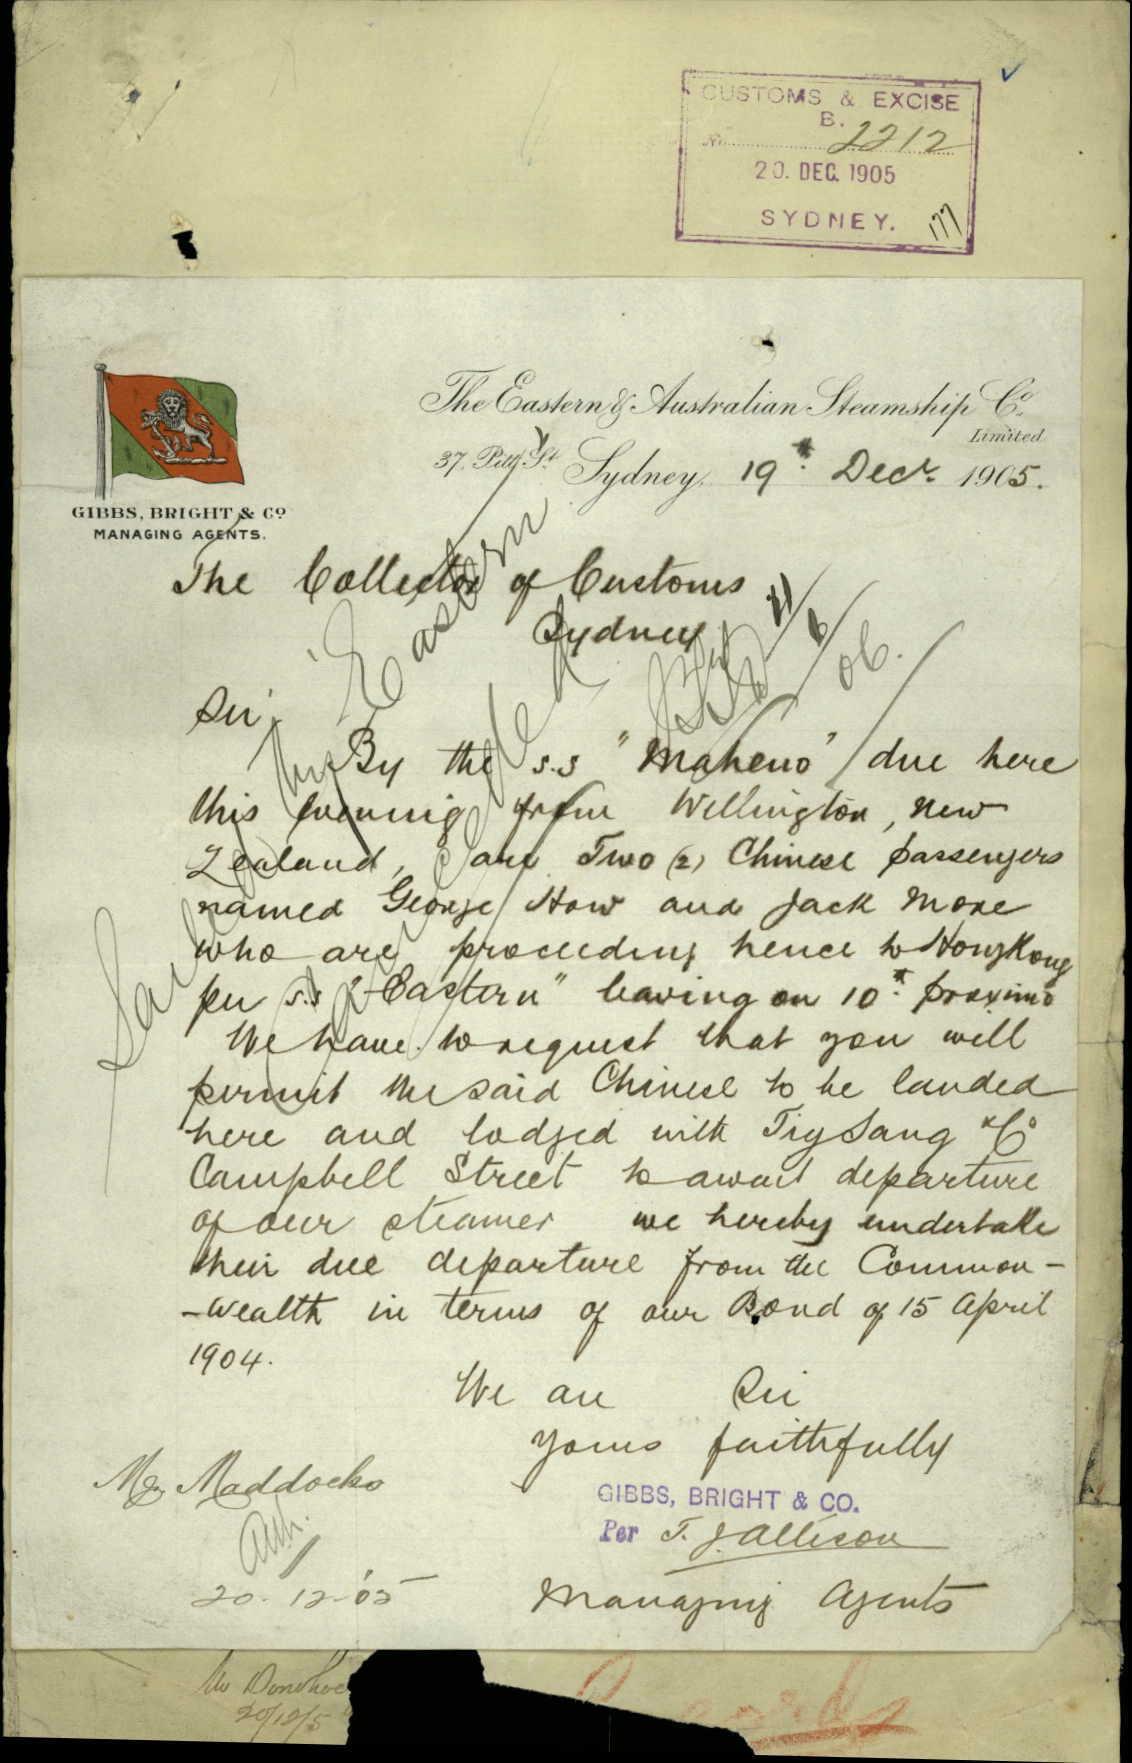 CUSTOMS & EXCISE
B.
No. 2212
20. DEC. 1905
SYDNEY.
177
The Eastern & Australian Steamship Co.
Limited
37. Pitt St. Sydney, 19th Decr. 1905.
GIBBS, BRIGHT & Co
MANAGING AGENTS.
The Collector of Customs
Sydney
Sir,
By the s.s "Maheno" due here
this evening from Wellington, New
Zealand, are Two (2) Chinese passengers
named George How and Jack Mone
who are proceeding hence to Hong Kong
per s.s "Eastern" leaving on 10th proximo
We have to request that you will
permit the said Chinese to be landed
here and lodged with Tiy Sang & Co
Campbell Street to await departure
of our steamer we hereby undertake
their due departure from the Common-
-wealth in terms of our Bond of 15 April
1904.
We are Sir
Yours faithfully
GIBBS, BRIGHT & CO.
Per T. J. Allison
Managing Agents
Mr Maddocks
20-12-05
Sailed
Eastern
06.
Mr Donohoe
20/12/5